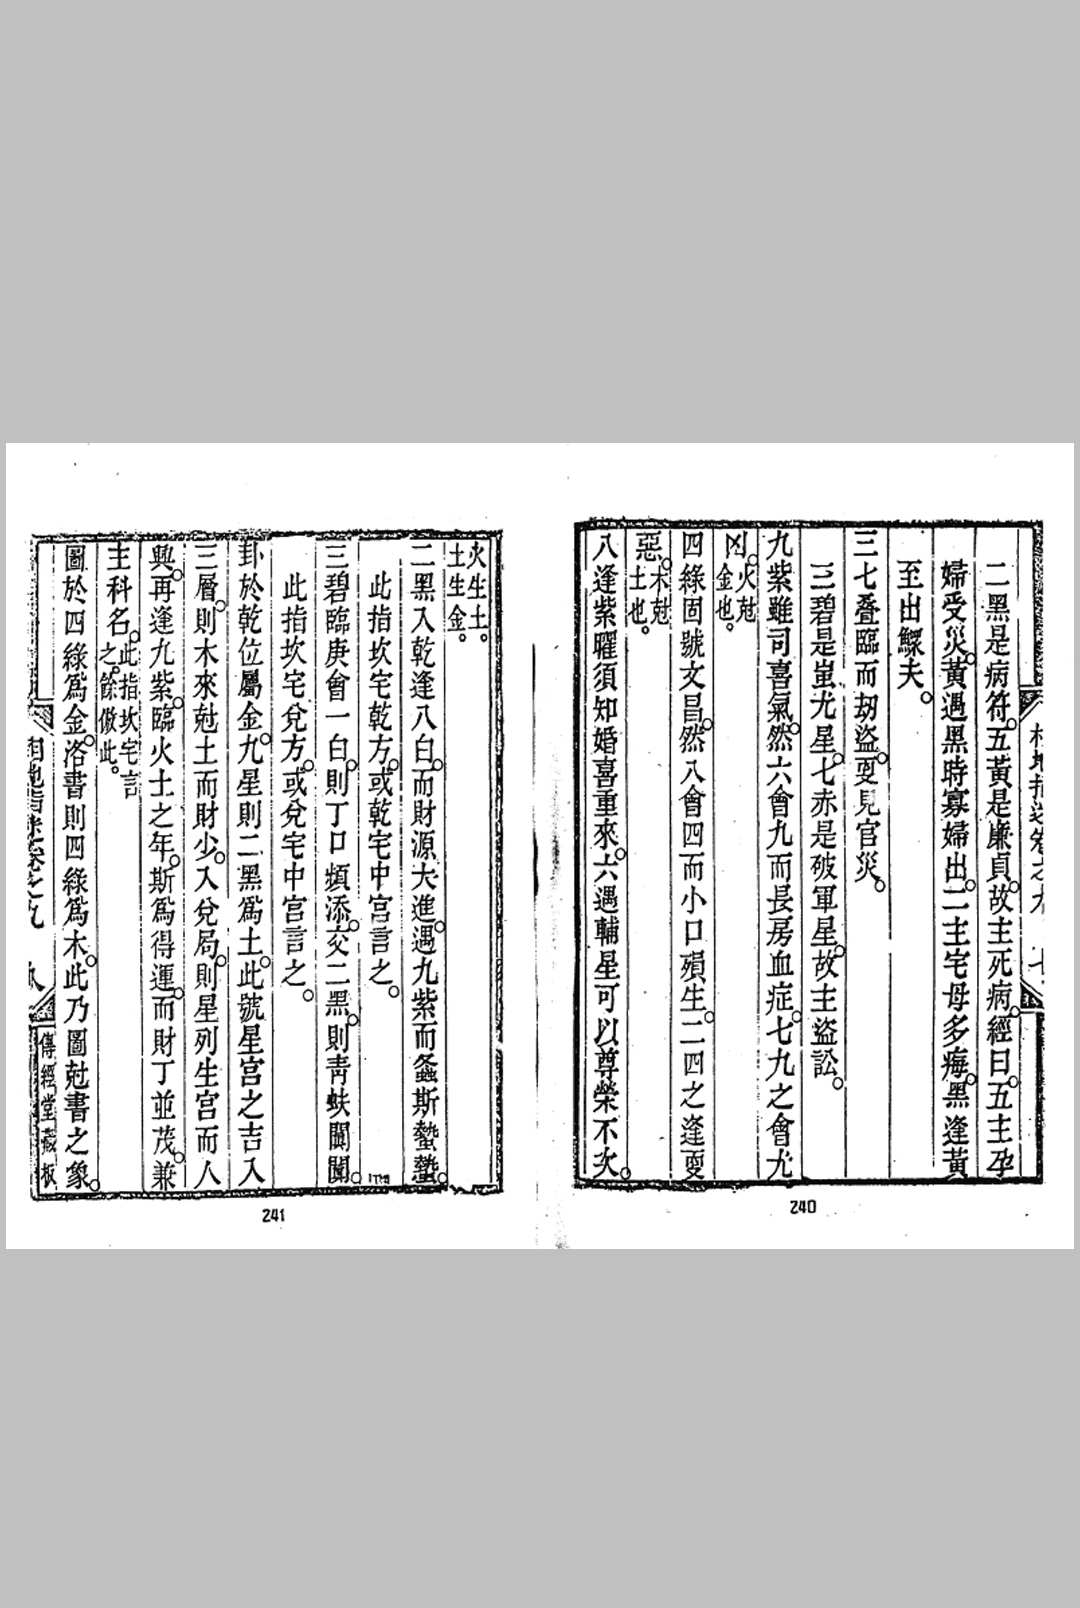 二黑是病符。五黃是廉貞。故主死病。經曰。五主孕
婦受災。黃遇黑時寡婦出。二主宅母多痗。黑逢黃
至出鰥夫。
三七叠臨而劫盜。更見官災。
三碧是蚩尤星。七赤是破軍星。故主盜訟。
九紫雖司喜氣。然六會九而長房血症。七九之會尤
凶。火尅金也。
四綠固號文昌。然八會四而小口殞生。二四之逢更
惡。木尅土也。
八逢紫曜須知婚喜重來。六遇輔星可以尊榮不次。
240
火生土。土生金。
二黑入乾逢八白。而財源大進。遇九紫而螽斯蟄蟄。
此指坎宅乾方。或乾宅中宮言之。
三碧臨庚會一白。則丁口頻添。交二黑。則青蚨闐闐。
此指坎宅兌方。或兌宅中宮言之。
卦於乾位屬金。九星則二黑爲土。此號星宮之吉入
三層。則木來尅土而財少。入兌局。則星列生宮而人
興。再逢九紫。臨火土之年。斯爲得運。而財丁並茂。兼
主科名。此指坎宅言之。餘倣此。
圖於四綠爲金。洛書則四綠爲木。此乃圖尅書之象。
傳經堂藏板
241